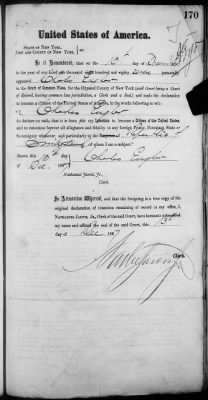 170
United States of America.
STATE OF NEW YORK,
CITY AND COUNTY OF NEW YORK, } ss:
Be it Remembered, that on the 13th day of
in the year of our Lord one thousand eight hundred and eighty personally
appeared Charles
in the Court of Common Pleas, for the City and County of New York (said Court being a Court of
Record, having common law jurisdiction, a Clerk and a Seal), and made his declaration
to become a Citizen of the United States, in the words following to wit:
I, Charles
do declare on oath, that it is bona fide my intention to become a Citizen of the United States
and to renounce forever all allegiance and fidelity to any foreign Prince, Potentate, State or
Sovereignty whatever, and particularly to the Republic of
Switzerland of whom I am a subject.
Sworn this 13th day } Charles
of Dec. 1887
Nathaniel Jarvis, Jr.,
Clerk.
In Attestation Whereof, and that the foregoing is a true copy of the
original declaration of intention remaining of record in my office, I,
NATHANIEL JARVIS, Jr., Clerk of the said Court, have hereunto subscribed
my name and affixed the seal of the said Court, this 13th
day of Dec 1887
Clerk.